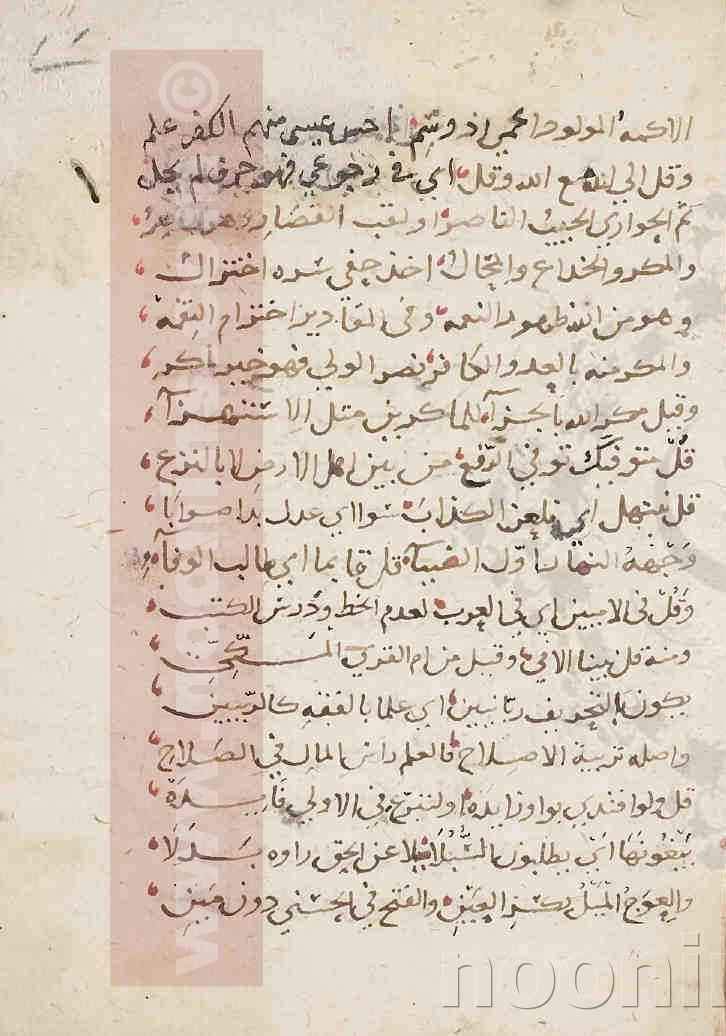 الاكمه المولود اعمى اذ وشم فا حس عيسى منهم الكفر علم
وقل الى الله مع الله وقل اي في رجوعي فهو حرف لم يحل
ثم الحواري الحبيب الناصر او لقب القصار
والمكر والخداع والمحال اخذ خفي شده اختزال
وهو من الله ظهور النعمه وفي المقادير اخترام النقمة
والمكر منه بالعدو الكافر نصر الولي فهو خير ماكر
وقيل مكر الله بالجزآء للماكرين مثل الاستهزآء
قل متوفيك توفي الرفع من بين اهل الارض لا بالنزع
قل نبتهل اي نلعن الكذابا سوا اي عدل بدا صوابا
وجهه النهار اول الضيآء قل قايما اي طالب الوفآء
وقل في الاميين اي في العرب لعدم الخط ودرس الكتب
ومنه قل نبينا الامي وقيل من ام القرى المكي
يكون بالتحريف ربانيين اي علما بالفقه كالربيين
واصله تربية الاصلاح فالعلم راس المال في الصلاح
قل ولو افتدى بواو زايده او لتنوع في الاولى فايده
يبغونها اي يطلبون السبلا عن الحق راوه بدلا
والعوج الميل بكسر العين والفتح في الحسي دون مين
noonin